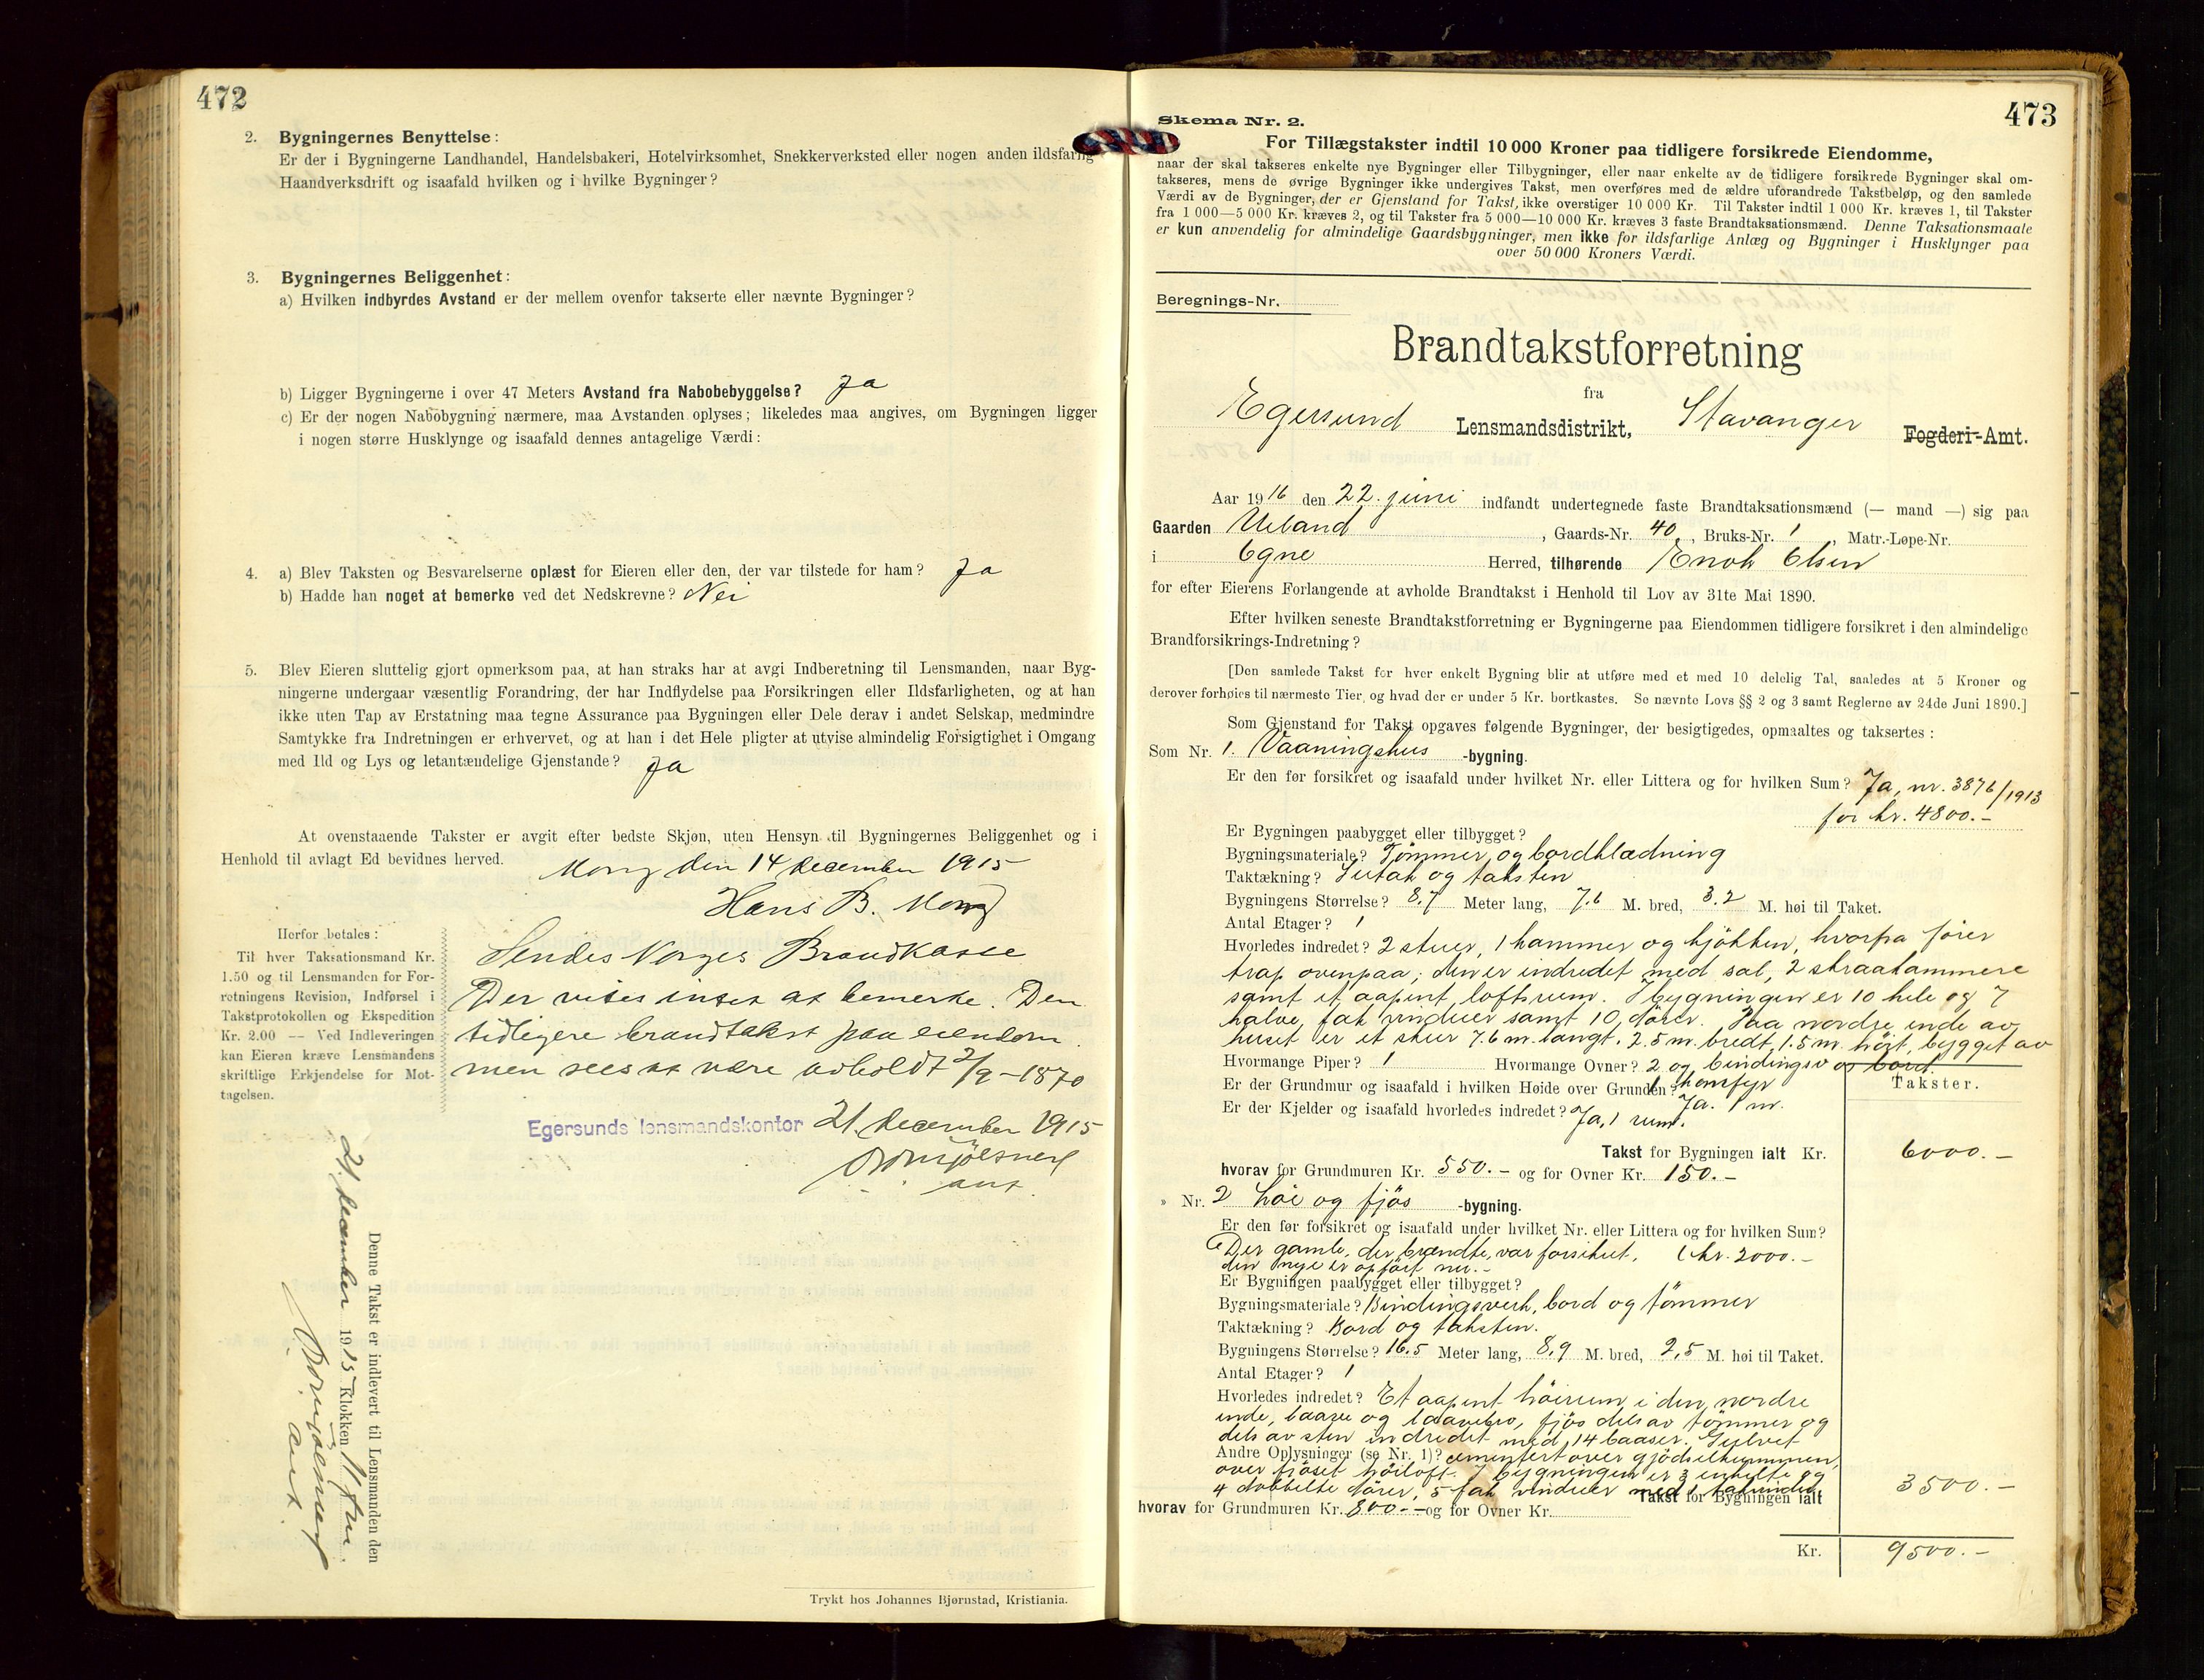 472
2. Bygningernes Benyttelse:
Er der i Bygningerne Landhandel, Handelsbakeri, Hotelvirksomhet, Snekkerverksted eller nogen anden ildsfarlig
Haandverksdrift og isaafald hvilken og i hvilke Bygninger?
3. Bygningernes Beliggenhet:
a) Hvilken indbyrdes Avstand er der mellem ovenfor takserte eller nævnte Bygninger?
b) Ligger Bygningerne i over 47 Meters Avstand fra Nabobebyggelse? Ja
c) Er der nogen Nabobygning nærmere, maa Avstanden oplyses; likeledes maa angives, om Bygningen ligger
i nogen større Husklynge og isaafald dennes antagelige Værdi:
4. a) Blev Taksten og Besvarelserne oplæst for Eieren eller den, der var tilstede for ham? Ja
b) Hadde han noget at bemerke ved det Nedskrevne? Nei
5. Blev Eieren sluttelig gjort opmerksom paa, at han straks har at avgi Indberetning til Lensmanden, naar Byg-
ningerne undergaar væsentlig Forandring, der har Indflydelse paa Forsikringen eller Ildsfarligheten, og at han
ikke uten Tap av Erstatning maa tegne Assurance paa Bygningen eller Dele derav i andet Selskap, medmindre
Samtykke fra Indretningen er erhvervet, og at han i det Hele pligter at utvise almindelig Forsigtighet i Omgang
med Ild og Lys og letantændelige Gjenstande? Ja
At ovenstaaende Takster er avgit efter bedste Skjøn, uten Hensyn til Bygningernes Beliggenhet og i
Henhold til avlagt Ed bevidnes herved.
Mong den 14 december 1915
Hans B. Mong
Herfor betales:
Til hver Taksationsmand Kr.
1.50 og til Lensmanden for For-
retningens Revision, Indførsel i
Takstprotokollen og Ekspedition
Kr. 2.00 -- Ved Indleveringen
kan Eieren kræve Lensmandens
skriftlige Erkjendelse for Mot-
tagelsen.
Sendes Norges Brandkasse
Der vites intet at bemerke. Den
tidligere brandtakst paa eiendom
men sees at være avholdt 2/9-1870
Egersunds lensmandskontor 21. december 1915
ant.
Denne Takst er indlevert til Lensmanden den
21. december 1915 Klokken 11 fm.
ant.
Trykt hos Johannes Bjørnstad, Kristiania.
473
Skema Nr. 2.
For Tillægstakster indtil 10 000 Kroner paa tidligere forsikrede Eiendomme,
naar der skal takseres enkelte nye Bygninger eller Tilbygninger, eller naar enkelte av de tidligere forsikrede Bygninger skal om-
takseres, mens de øvrige Bygninger ikke undergives Takst, men overføres med de ældre uforandrede Takstbeløp, og den samlede
Værdi av de Bygninger, der er Gjenstand for Takst, ikke overstiger 10 000 Kr. Til Takster indtil 1 000 Kr. kræves 1, til Takster
fra 1 000—5 000 Kr. kræves 2, og til Takster fra 5 000—10 000 Kr. kræves 3 faste Brandtaksationsmænd. Denne Taksationsmaate
er kun anvendelig for almindelige Gaardsbygninger, men ikke for ildsfarlige Anlæg og Bygninger i Husklynger paa
over 50 000 Kroners Værdi.
Beregnings-Nr.
Brandtakstforretning
fra
Egersund Lensmandsdistrikt, Stavanger Fogderi-Amt.
Aar 1916 den 22. juni indfandt undertegnede faste Brandtaksationsmænd (— mand —) sig paa
Gaarden Ueland, Gaards-Nr. 40, Bruks-Nr. 1, Matr.-Løpe-Nr.
i Ogne Herred, tilhørende Enok Olsen
for efter Eierens Forlangende at avholde Brandtakst i Henhold til Lov av 31te Mai 1890.
Efter hvilken seneste Brandtakstforretning er Bygningerne paa Eiendommen tidligere forsikret i den almindelige
Brandforsikrings-Indretning?
[Den samlede Takst for hver enkelt Bygning blir at utføre med et med 10 delelig Tal, saaledes at 5 Kroner og
derover forhøies til nærmeste Tier, og hvad der er under 5 Kr. bortkastes. Se nævnte Lovs §§ 2 og 3 samt Reglerne av 24de Juni 1890.]
Som Gjenstand for Takst opgaves følgende Bygninger, der besigtigedes, opmaaltes og taksertes:
Som Nr. 1. Vaaningshus -bygning.
Er den før forsikret og isaafald under hvilket Nr. eller Littera og for hvilken Sum? Ja, nr. 3876/1913
for kr. 4800.-
Er Bygningen paabygget eller tilbygget?
Bygningsmateriale? Tömmer og bordklædning
Taktækning? Sutak og taksten
Bygningens Størrelse? 8,7 Meter lang, 7.6 M. bred, 3.2 M. høi til Taket.
Antal Etager? 1
Hvorledes indredet? 2 stuer, 1 kammer og kjökken, hvorfra förer
trap ovenpaa; den er indredet med sal, 2 skraakammere
samt et aapent loftsrum. I bygningen er 10 hele og 7
halve fak vinduer samt 10 dörer. Paa nordre ende av
huset er et skur 7.6 m. langt, 2.5 m. bredt, 1.5 m. höit, bygget av
bindingsv og bord.
Hvormange Piper? 1 Hvormange Ovner? 2 og
1 komfyr
Er der Grundmur og isaafald i hvilken Høide over Grunden? Ja. 1 m.
Er der Kjelder og isaafald hvorledes indredet? Ja, 1 rum.
Takster.
Takst for Bygningen ialt Kr. 6000.-
hvorav for Grundmuren Kr. 550.- og for Ovner Kr. 150.-
» Nr. 2 Löe og fjös -bygning.
Er den før forsikret og isaafald under hvilket Nr. eller Littera og for hvilken Sum?
Den gamle, der brændte, var forsikret. (kr. 2000.-
den nye er opfört nu.-
Er Bygningen paabygget eller tilbygget?
Bygningsmateriale? Bindingsverk, bord og tömmer
Taktækning? Bord og taksten.
Bygningens Størrelse? 16,5 Meter lang, 8,9 M. bred, 2,5 M. høi til Taket.
Antal Etager? 1
Hvorledes indredet? Et aapent höirum i den nordre
ende, laave og laavebro, fjös dels av tömmer og
dels av sten indredet med 14 baaser. Gulvet
Andre Oplysninger (se Nr. 1)? cementert over gjödselkummen,
over fjöset höiloft. I bygningen er 3 enkelte og
4 dobbelte dörer, 5 fak vinduer med
Takst for Bygningen ialt 3500.-
hvorav for Grundmuren Kr. 800.- og for Ovner Kr.
Kr. 9500.-